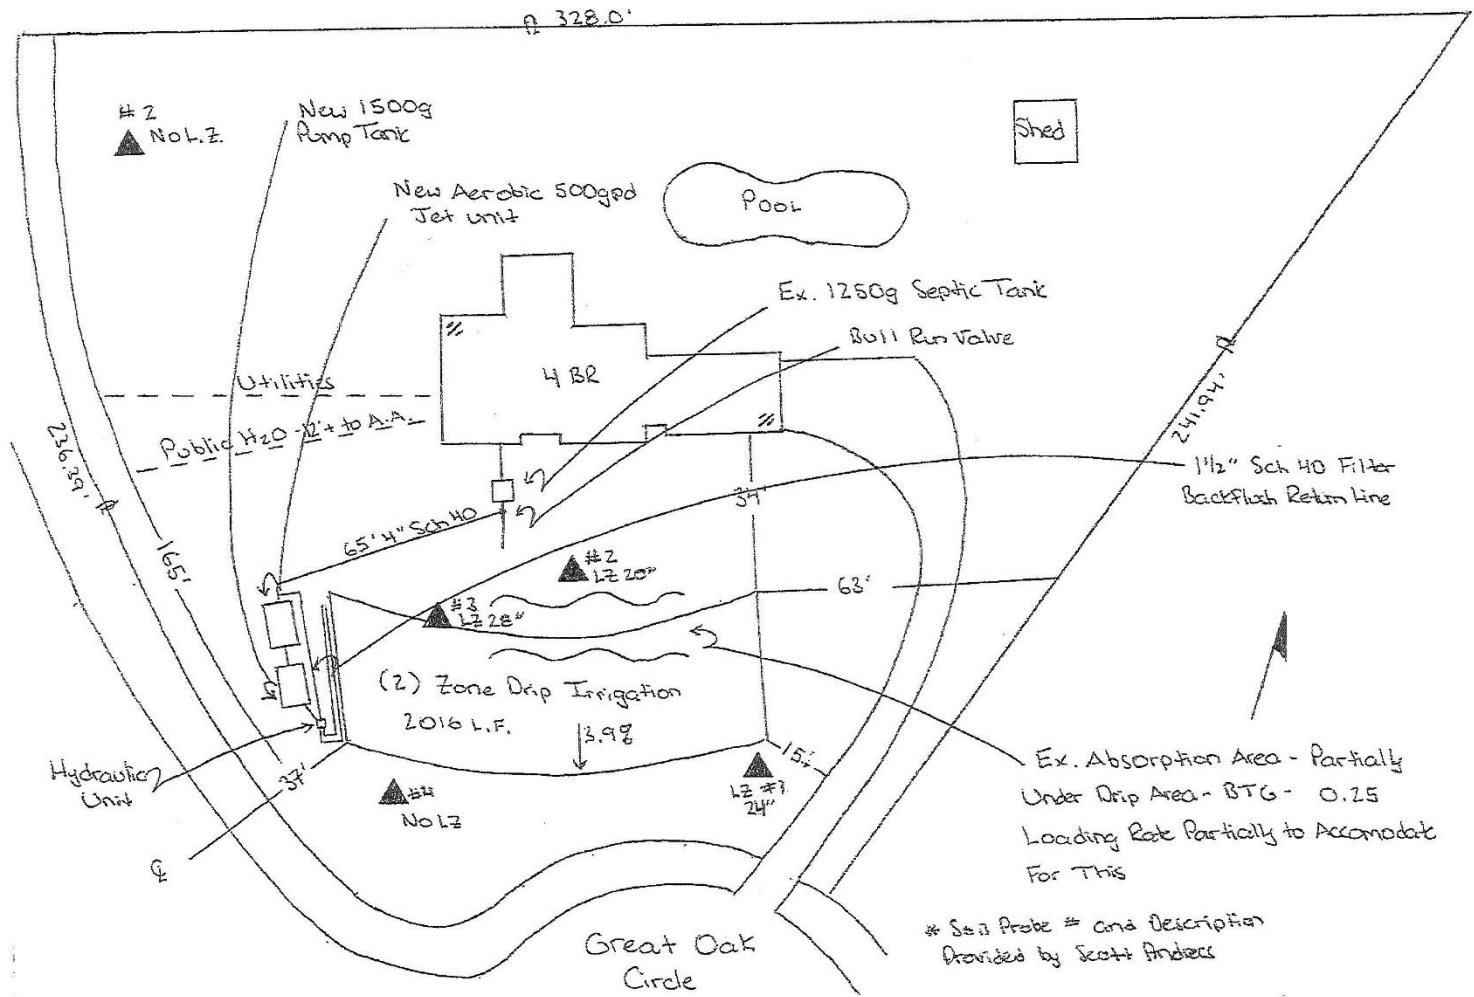 328.0'
#2
No L.Z.
New 1500g
Pump Tank
Shed
New Aerobic 500gpd
Jet unit
POOL
Ex. 1250g Septic Tank
Bull Run Valve
4 BR
Utilities
Public H2O -12'+ to A.A.
236.39'
241.94'
1½" Sch 40 Filter
Backflush Return Line
34'
65' 4" Sch 40
165'
#2
LZ 20"
#3
LZ 28"
63'
(2) Zone Drip Irrigation
2016 L.F.
3.9%
Hydraulic
Unit
37'
15'
#4
No LZ
LZ #1
24"
Ex. Absorption Area - Partially
Under Drip Area - BTG - 0.25
Loading Rate Partially to Accomodate
For This
* Soil Probe # and Description
Provided by Scott Anders
Great Oak
Circle